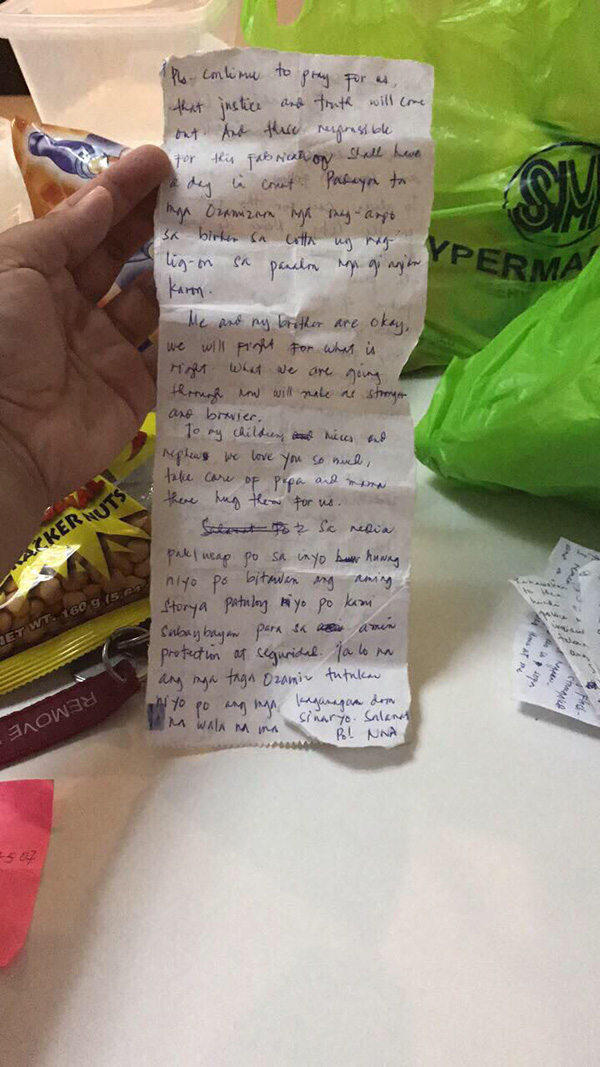 Pls. continue to pray for us,
that justice and truth will come
out. And those responsible
for this fabrication shall have
a day in court. Padayon ta
mga Ozamiznon nga mag-ampo
sa birhen sa Cotta ug mag-
lig-on sa panahon nga gi anjan
karon.
Me and my brother are okay,
we will fight for what is
right. What we are going
through now will make us stronger
and bravier.
To my children, and nieces and
nephews we love you so much,
take care of papa and mama
there hug them for us.
Sa media
pakiusap po sa inyo huwag
niyo po bitawan ang aming
storya patuloy niyo po kami
subaybayan para sa amin
protection at seguridad. Ya lo na
ang mga taga Ozamiz tutukan
niyo po ang mga kaganapan dom
na wala na ma sinaryo. Salamat
Po! NNA
CRACKER NUTS
NET WT. 160 g (5.6
REMOVE
SM
HYPERMA
5-07